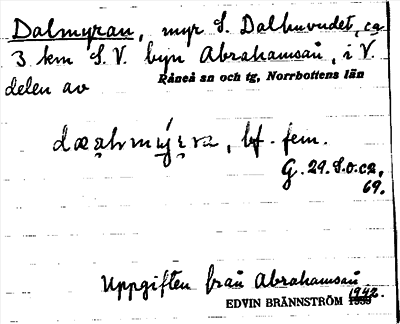 Dalmyran, myr S. Dalhuvudet, ca
3 km S.V. byn Abrahamsån, i V.
delen av Råneå sn och tg, Norrbottens län
bf. fem.
G. 29. S.o.ca,
69.
Uppgiften från Abrahamsån
1942.
EDVIN BRÄNNSTRÖM 1939